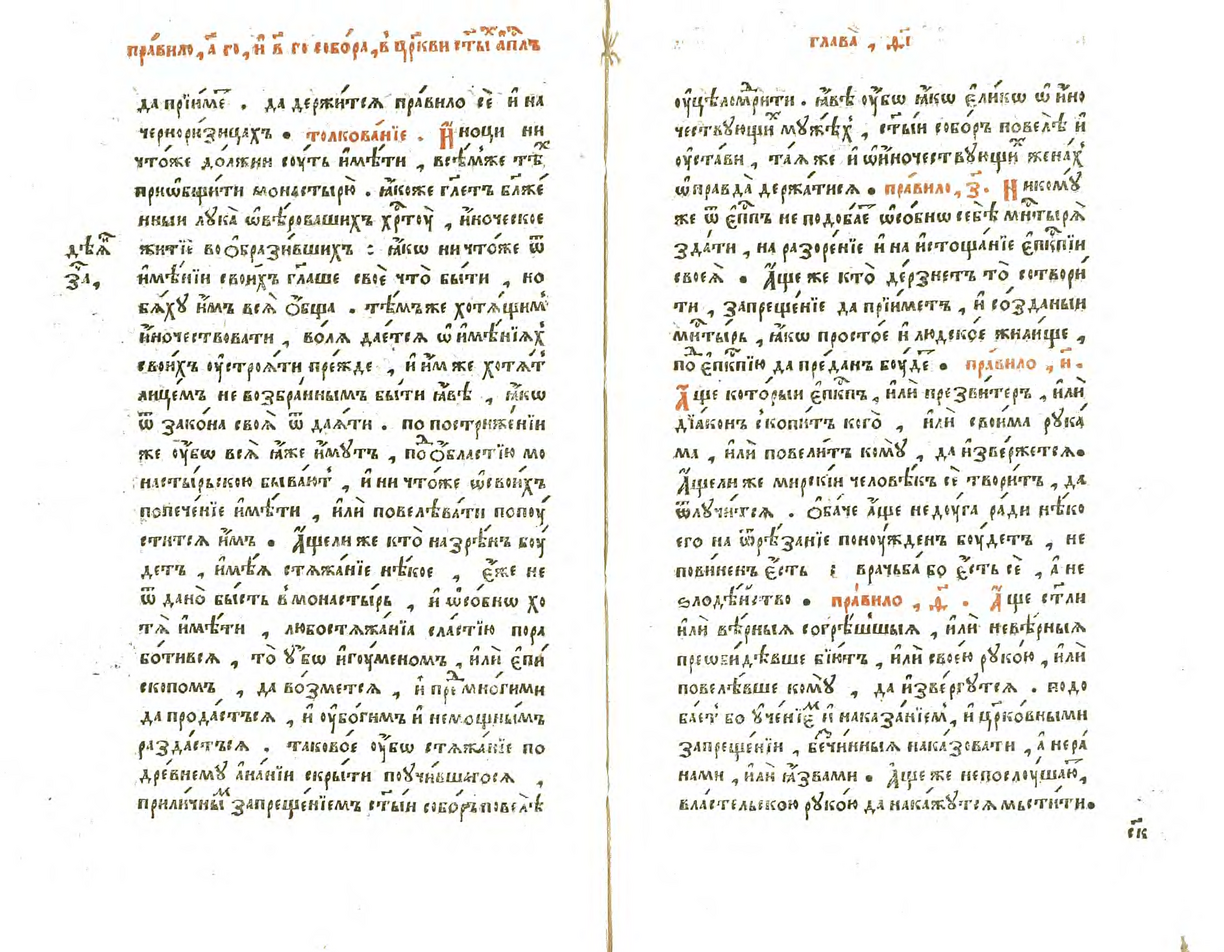 пра́вило, а҃ го, и҆ в҃ го собо́ра, в цр҃кви ст҃ы́х а҆пⷭ҇лъ
да прїи́ме . да держи́тся пра́вило сѐ и҆ на
черно́ри́зицахъ . толкова́нїе . И҆́нощи ни
что́же до́лжни сꙋ́ть и҆мѣ́ти , всѣ́мже тѣ́х
приѡ҆бщи́ти монасты́рю . ꙗ҆́коже гл҃етъ бл҃же́
нныи лꙋка̀ ѡ҆вѣ́ровашихъ хрⷭ҇тꙋ̀ , и҆́ноческое
житїѐ воѻбрази́вшихъ : ꙗ҆́кѡ ничто́же ѿ
дѣѧ҃
за҃,
и҆мѣ́нїи свои́хъ гл҃аше своѐ что̀ бы́ти , но
бѧ́хꙋ и҆̀мъ всѧ̀ ѻ҆́бща . тѣ́мъже хотѧ́щим
и҆́ночествовати , во́лѧ дае́тся ѡ҆ и҆мѣ́нїѧх
свои́хъ ᲂу҆строѧ́ти пре́жде , и҆ и҆́мже хотѧ́т
ли́цемъ невозбра́ннымъ бы́ти ꙗ҆́вѣ , ꙗ҆́кѡ
ѿ зако́на своѧ̀ ѿ даѧ́ти . по постриже́нїи
же ᲂу҆́бѡ всѧ̀ ꙗ҆́же и҆́мꙋтъ , под ѻ҆́бластїю мо
насты́рьскою быва́ют , и҆ ничто́же ѡ҆своихъ
попече́нїе и҆мѣ́ти , и҆лѝ повелѣва́ти попꙋ́
сти́тся и҆̀мъ . А҆́щели же кто̀ назрѣ́нъ бꙋ́
детъ , и҆мѣ́ѧ стѧжа́нїе нѣ́кое , є҆́же не
ѿ дано̀ бы́сть в монасты́рь , и҆ ѡ҆со́бнѡ хо
тѧ̀ и҆мѣ́ти , любостѧжа́нїѧ сла́стїю пора
бо́тивсѧ , то̀ ᲂу҆́бѡ и҆гꙋ́меномъ , и҆лѝ є҆пи́
скопомъ , да во́змется , и҆ пред мно́гими
да прода́стъсѧ , и҆ ᲂу҆бо́гимъ и҆ немощны́мъ
разда́стъсѧ . таково́е ᲂу҆́бѡ стѧжа́нїе по
дре́внемꙋ а҆на́нїи скры́ти поꙋчи́вшагосѧ ,
прили́чным запреще́нїемъ ст҃ы́и собо́ръ повелѣ̀
глава̀ , д҃ї
ᲂу҆цѣломꙋдрити . ꙗ҆́вѣ ᲂу҆́бѡ ꙗ҆́кѡ є҆ли́кѡ ѡ҆ и҆́но
че́ствꙋющих мꙋ́жѣх , ст҃ы́и собо́ръ повелѣ̀ и҆
ᲂу҆ста́ви , та́ѧ же и҆ ѡ҆ и҆ночествꙋющих жена́х
ѡ҆правда̀ держа́тися . пра́вило, з҃. Никомꙋ́
же ѿ є҆пⷭ҇пъ не подоба́е ѡ҆со́бнѡ себѣ̀ мнⷭ҇тырѧ̀
зда́ти , на разоре́нїе и҆ на и҆стоща́нїе є҆пⷭ҇кпїи
своеѧ̀ . А҆́ще же кто̀ де́рзнетъ то̀ сотвори́
ти , запреще́нїе да прїи́метъ , и҆ со́зданыи
мнⷭ҇тырь , ꙗ҆́кѡ просто́е и҆ людско́е жили́ще ,
под є҆пⷭ҇кпїю да пре́данъ бꙋ́де . пра́вило , и҃.
А҆́ще который є҆пⷭ҇кпъ , и҆лѝ презви́теръ , и҆лѝ
дїа́конъ скопи́тъ кого̀ , и҆лѝ свои́ма рꙋка́
ма , и҆лѝ повели́тъ комꙋ̀ , да и҆зве́ржется.
А҆́щели же мирскі́и человѣ́къ сѐ твори́тъ , да
ѿлꙋчи́тся . Ѻ҆ба́че а҆́ще недꙋ́га ра́ди нѣ́ко
его на ѿрѣ́занїе понꙋжденъ бꙋ́детъ , не
пови́ненъ є҆́сть : врачьба́ бо є҆́сть сѐ , а҆ не
ѕлодѣ́йство . пра́вило , д҃ . А҆́ще ст҃ли
и҆лѝ вѣ́рныѧ согрѣ́шшыѧ , и҆лѝ невѣ́рныѧ
преѡби́дѣвше бїю́тъ , и҆лѝ свое́ю рꙋко́ю , и҆лѝ
повелѣ́вше комꙋ̀ , да и҆зве́ргꙋтся . подо
ба́ет бо ᲂу҆че́нїем и҆ наказа́нїем , и҆ цр҃ко́вными
запреще́нїи , бечи́нныѧ наказовати , а҆ не ра́
нами , и҆лѝ ꙗ҆́звами . А҆́ще же непослꙋ́шаю ,
власте́льскою рꙋко́ю да нака́жꙋтся мьсти́ти.
ск҃